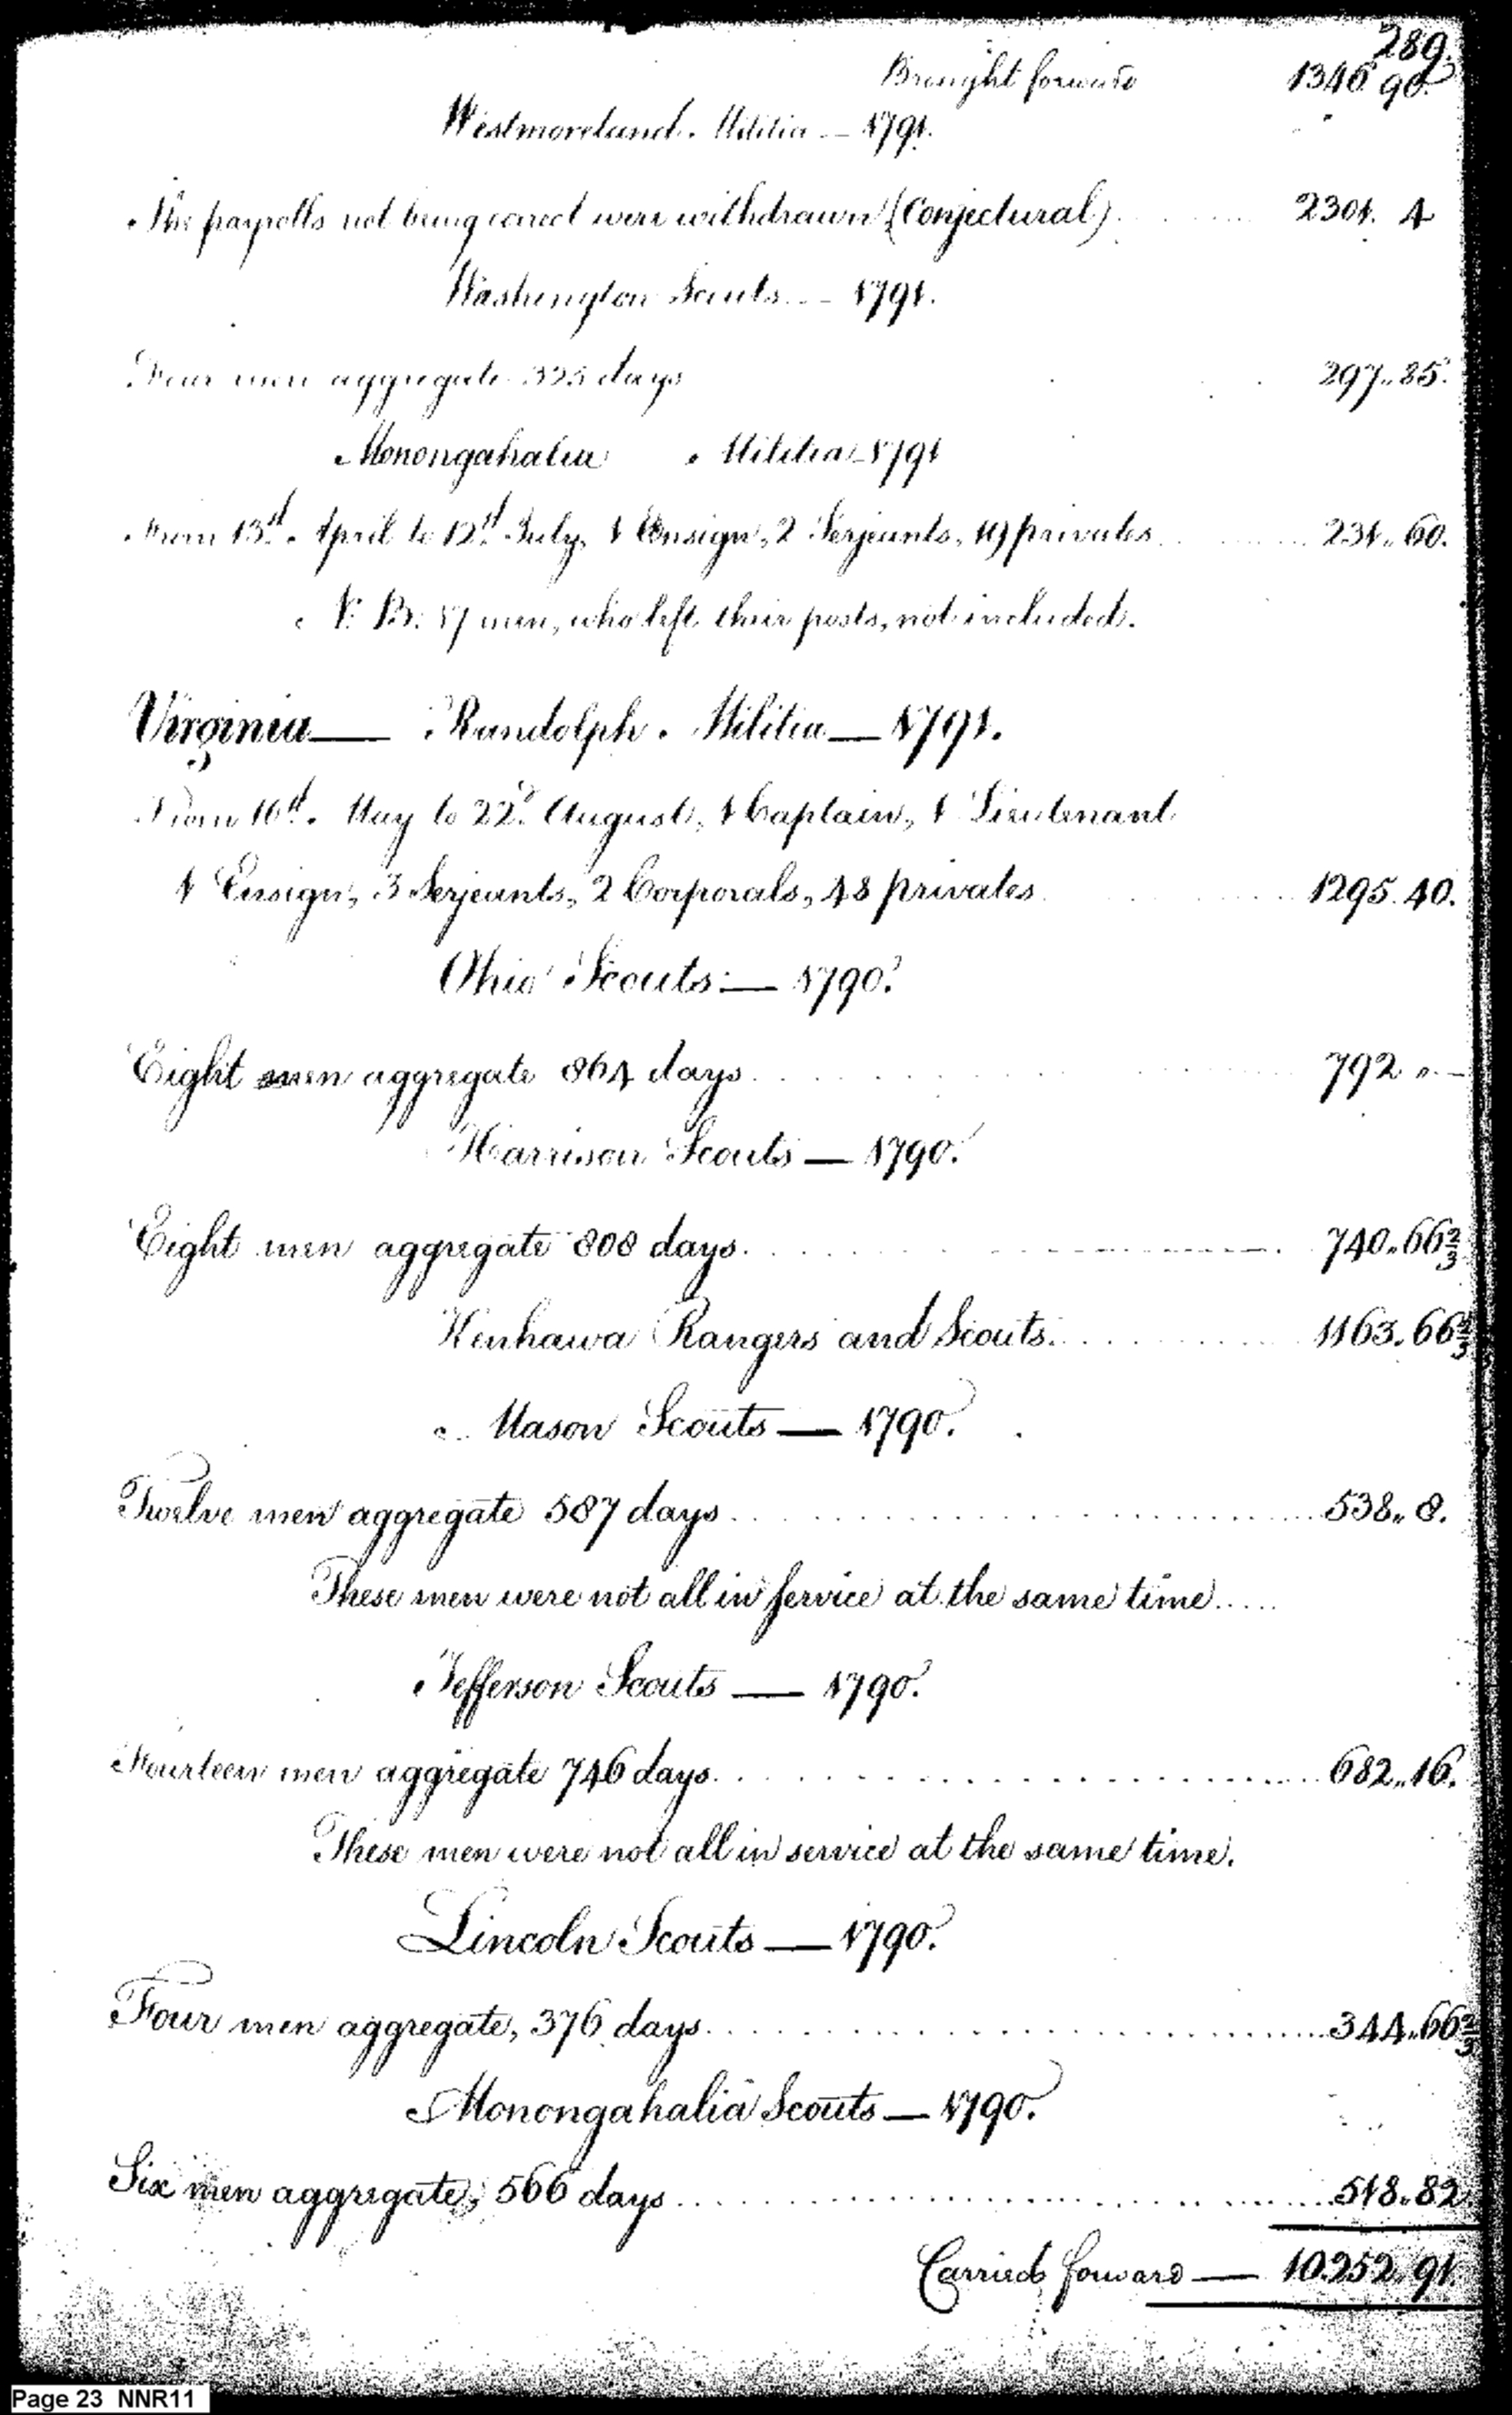 289.
Brought forward 1346 90.
Westmoreland. Militia — 1791.
The payrolls not being correct were withdrawn (Conjectural) 2301. 4
Washington Scouts — 1791.
Four men aggregate 325 days 297.. 85.
Monongahalia Militia 1791
From 13th. April to 12th. July, 1 Ensign, 2 Serjeants, 19 privates 231.. 60.
N. B. 17 men, who left their posts, not included.
Virginia — Randolph. Militia — 1791.
From 16th. May to 22d. August, 1 Captain, 1 Lieutenant
1 Ensign, 3 Serjeants, 2 Corporals, 48 privates 1295. 40.
Ohio Scouts — 1790.
Eight men aggregate 864 days 792 ..—
Harrison Scouts — 1790.
Eight men aggregate 808 days. 740.. 66 2/3
Kenhawa Rangers and Scouts. 1163. 66 2/3
Mason Scouts — 1790.
Twelve men aggregate 587 days 538.. 8.
These men were not all in service at the same time
Jefferson Scouts — 1790.
Fourteen men aggregate 746 days. 682.. 16.
These men were not all in service at the same time.
Lincoln Scouts — 1790.
Four men aggregate, 376 days 344.. 66 2/3
Monongahalia Scouts — 1790.
Six men aggregate, 566 days 518.. 82
Carried forward — 10.252.. 91.
Page 23 NNR11